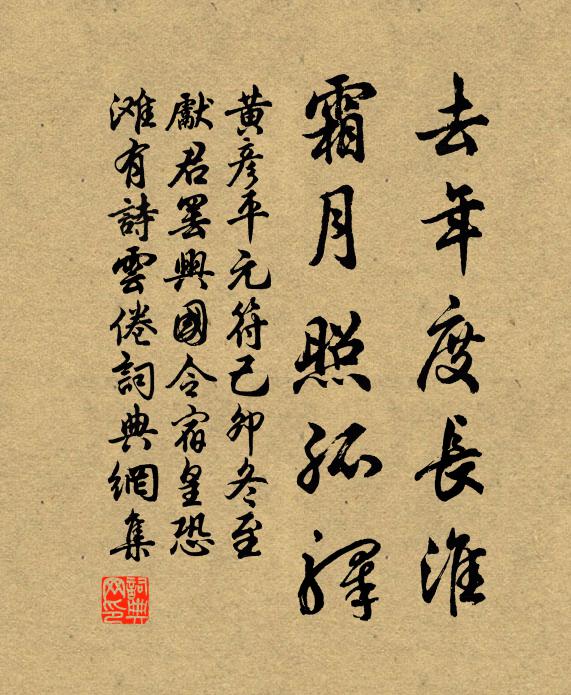 去年度長淮
霜月照孤驛
黄彦平元符己卯冬至
獻君罷興國令宿皇恐
滩有詩雲倦詞典網集
詞典网印